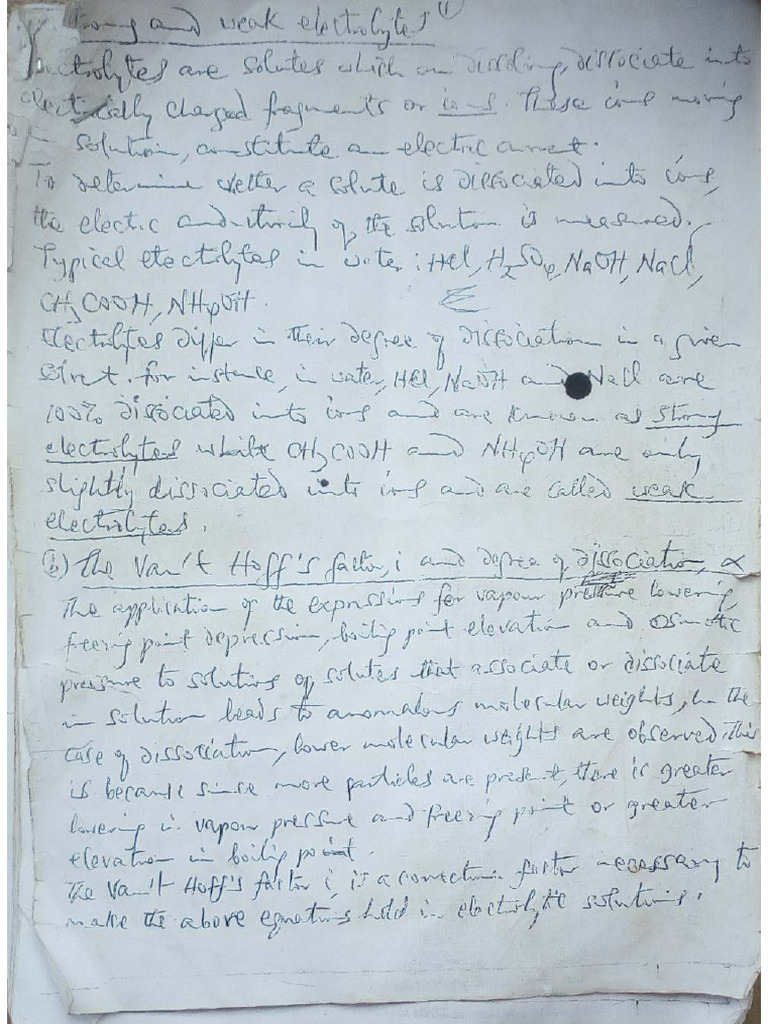 Strong and weak electrolytes (1)
Electrolytes are solutes which on dissolving, dissociate into
electrically charged fragments or ions. These ions moving
in solution, constitute an electric current.
To determine wether a solute is dissociated into ions,
the electric conductivity of the solution is measured.
Typical electrolytes in water: HCl, H2SO4, NaOH, NaCl,
CH3COOH, NH4OH.
Electrolytes differ in their degree of dissociation in a given
solvent. For instance, in water, HCl, NaOH and NaCl are
100% dissociated into ions and are known as strong
electrolytes while CH3COOH and NH4OH are only
slightly dissociated into ions and are called weak
electrolytes.
(b) The Van't Hoff's factor, i and degree of dissociation, α
The application of the expressions for vapour pressure lowering,
freezing point depression, boiling point elevation and osmotic
pressure to solutions of solutes that associate or dissociate
in solution leads to anomalous molecular weights, In the
case of dissociation, lower molecular weights are observed. This
is because since more particles are present, there is greater
lowering in vapour pressure and freezing point or greater
elevation in boiling point.
The Van't Hoff's factor i, is a correction factor necessary to
make the above equations hold in electrolytic solutions.